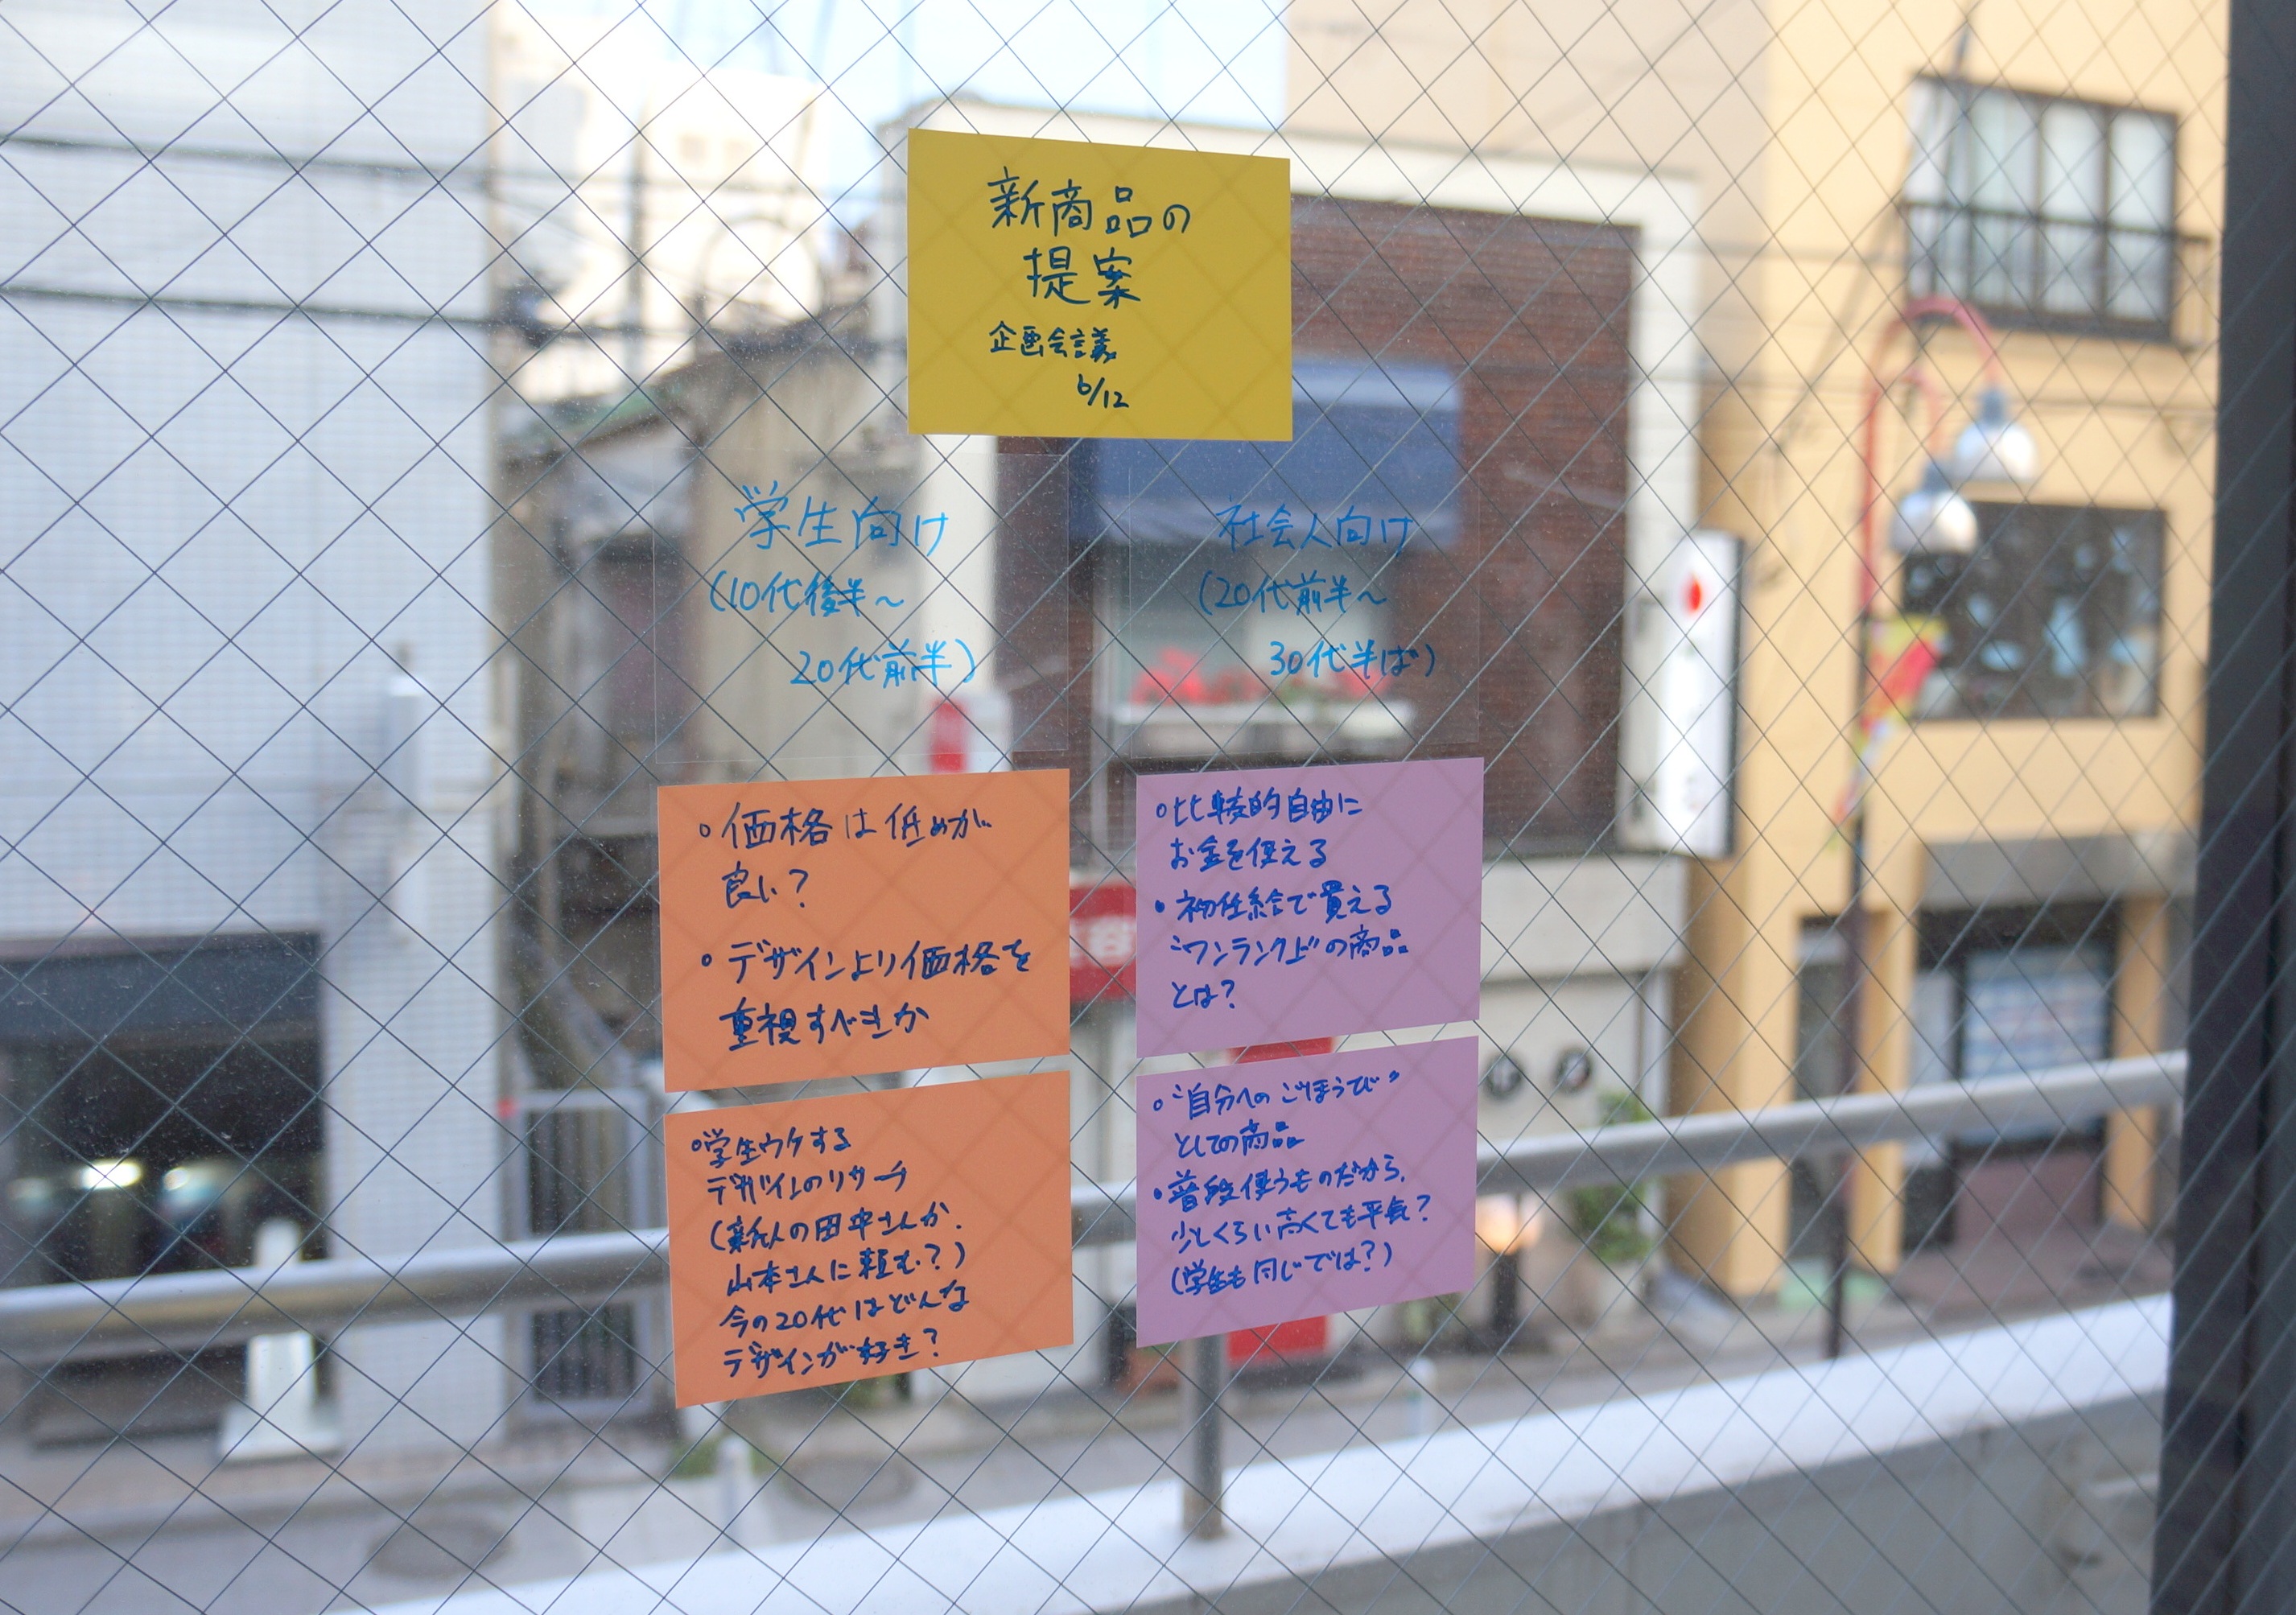 新商品の
提案
企画会議
6/12
学生向け
(10代後半～
20代前半)
社会人向け
(20代前半～
30代半ば)
◦価格は低めが
良い?
◦デザインより価格を
重視すべきか
◦学生ウケする
デザインのリサーチ
(新人の田中さんか、
山本さんに頼む?)
今の20代はどんな
デザインが好き?
◦比較的自由に
お金を使える
◦初任給で買える
"ワンランク上"の商品
とは?
◦"自分へのごほうび"
としての商品
◦普段使うものだから、
少しくらい高くても平気?
(学生も同じでは?)